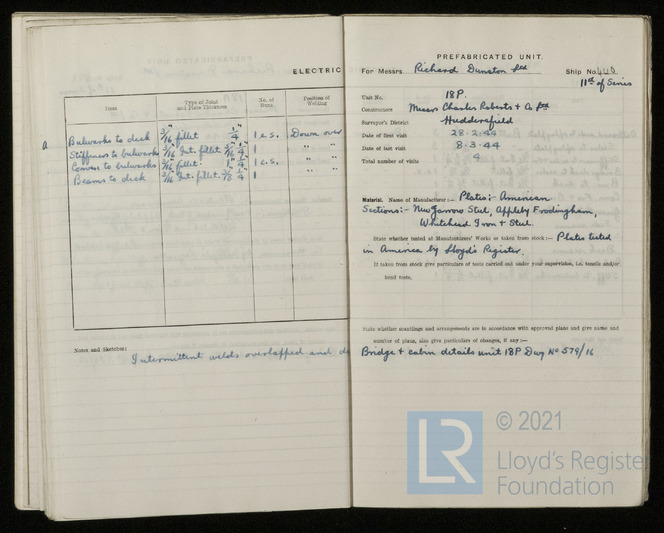 ELECTRIC
Item
Type of Joint and Plate Thickness
No. of Runs.
Position of Welding
a
Bulwarks to deck 3/16" fillet 1/4" 1 e.s. Down over
Stiffeners to bulwarks 3/16 Int. fillet 3/16 1/4 1 " "
Canvas to bulwarks 3/16 fillet 1/4 1 e.s. " "
Beams to deck 3/16 Int. fillet 3/8 1/4 1 " "
Notes and Sketches:
Intermittent welds overlapped and
PREFABRICATED UNIT.
For Messrs. Richard Dunston Ltd Ship No.
11th of Series
Unit No. 18P.
Constructors Messrs Charles Roberts & Co Ltd
Surveyor's District Huddersfield
Date of first visit 28.2.44
Date of last visit 8.3.44
Total number of visits 4
Material. Name of Manufacturer:— Plates:- American
Sections:- New Jarrow Steel, Appleby Frodingham,
Whitehead Iron & Steel.
State whether tested at Manufacturers' Works or taken from stock:— Plates tested
in America by Lloyd's Register.
If taken from stock give particulars of tests carried out under your supervision, i.e. tensile and/or
bend tests.
State whether scantlings and arrangements are in accordance with approved plans and give name and
number of plans, also give particulars of changes, if any:—
Bridge & cabin details unit 18P Dwg No 579/16
LR
© 2021
Lloyd's Register
Foundation